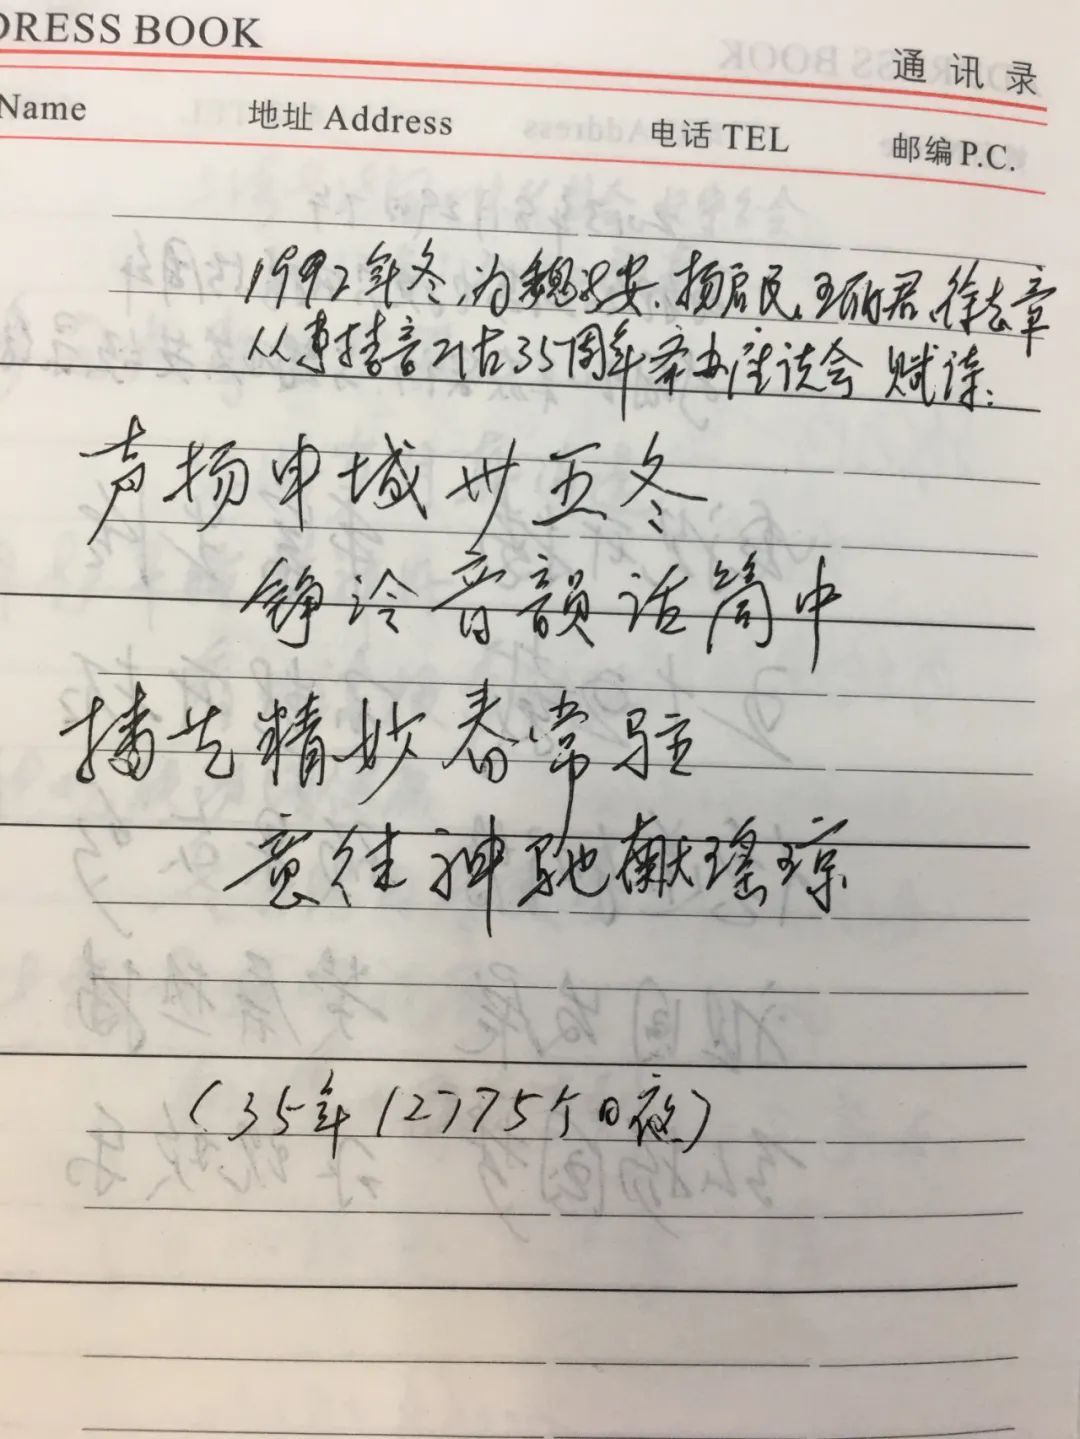 DRESS BOOK
通讯录
Name 地址 Address 电话 TEL 邮编 P.C.
1992年冬,为魏 安、杨启民、王丽君、徐 章
从事播音工作35周年举办座谈会 赋诗:
声扬申城卅五冬
铮泠音韵话筒中
播出精妙春常驻
意往神驰献瑶琼
(35年12775个日夜)